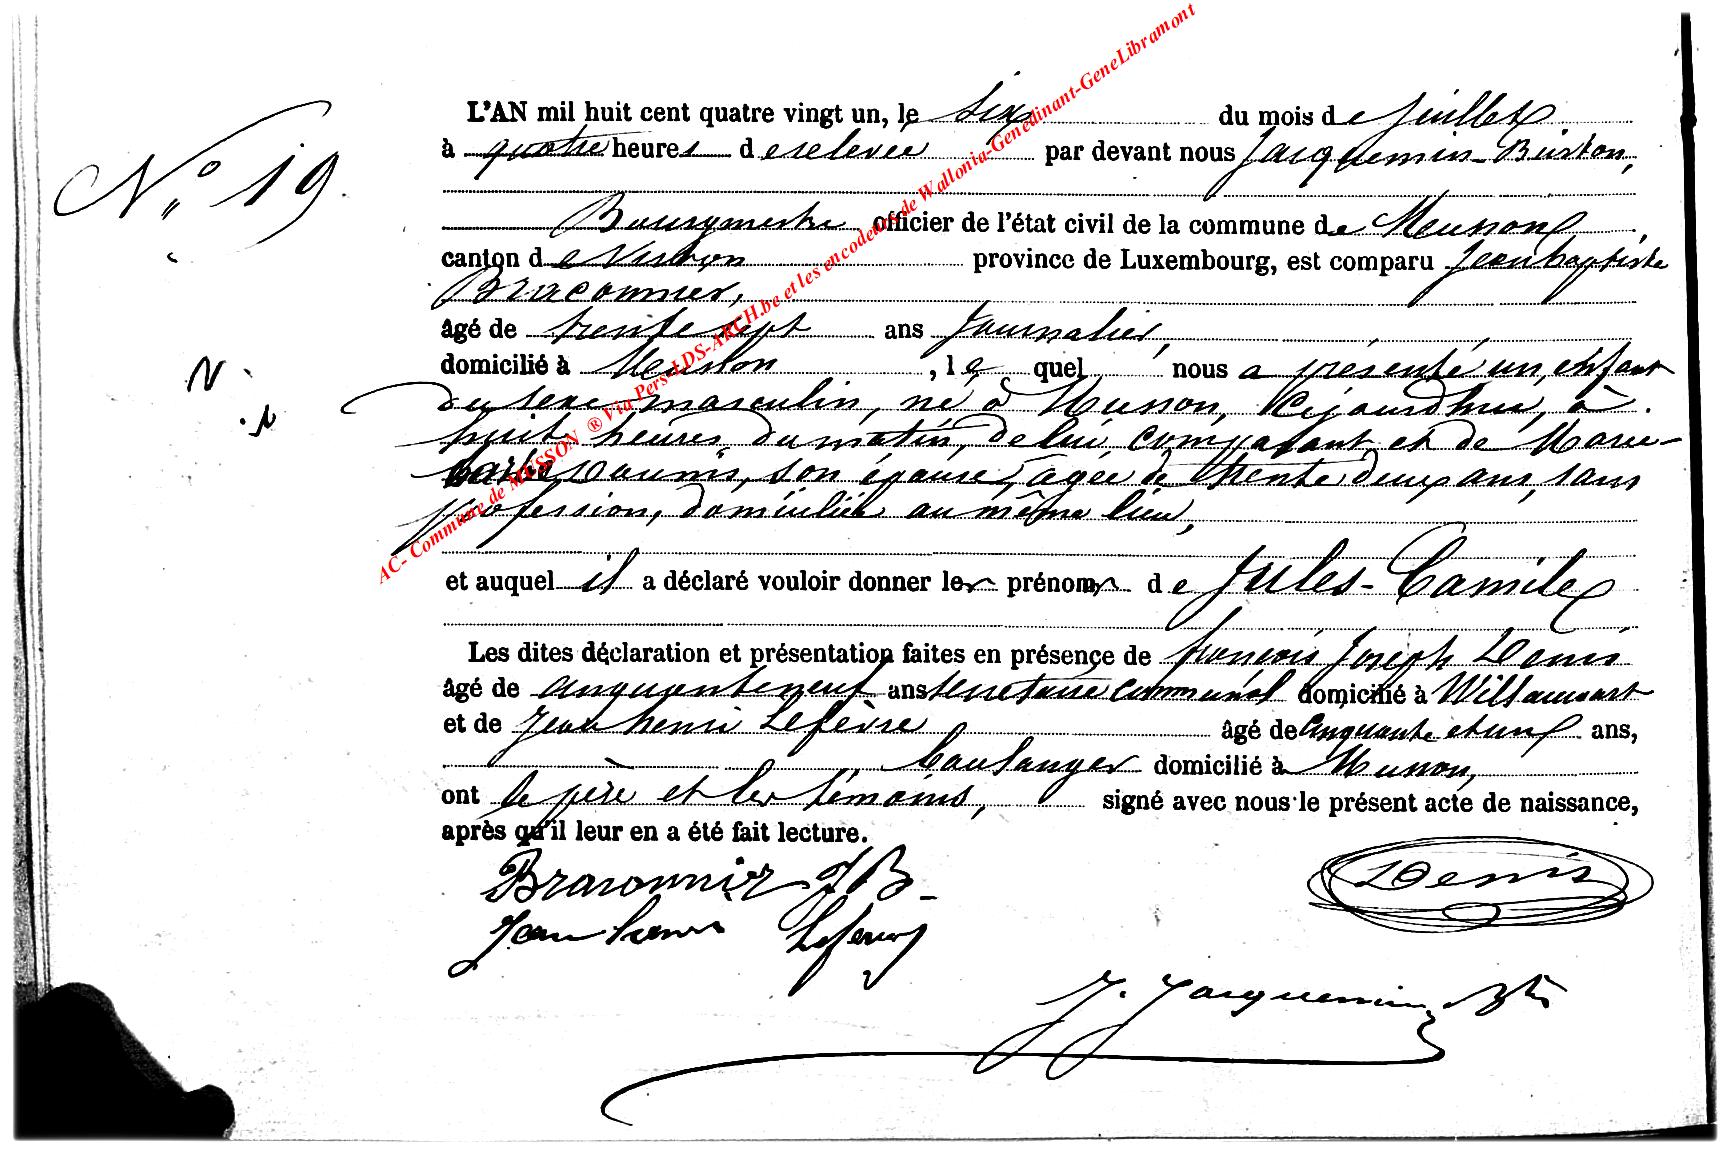 N° 19.
L'AN mil huit cent quatre vingt un, le six du mois de juillet
à quatre heures de relevée par devant nous Jacquemin-Burton,
Bourgmestre officier de l'état civil de la commune de Musson
canton de Virton province de Luxembourg, est comparu Jean baptiste
Braconnier,
âgé de trente sept ans journalier,
domicilié à Musson, lequel nous a présenté un enfant
N.
du sexe masculin, né à Musson, cejourdhui, à
huit heures du matin, de lui, comparant et de Marie-
barbe, son épouse, agée de trente deux ans, sans
profession, domiciliée au même lieu,
et auquel il a déclaré vouloir donner les prénoms de Jules-Camile
Les dites déclaration et présentation faites en présence de françois Joseph Denis
âgé de cinquante neuf ans secrétaire communal domicilié à Willancourt
et de Jean henri Lefèvre âgé de cinquante et un ans,
boulanger domicilié à Musson,
ont le père et les témoins, signé avec nous le présent acte de naissance,
après qu'il leur en a été fait lecture.
Braconnier JB
Denis
Jean henri Lefevre
J. Jacquemin Btn
AC- Commune de MUSSON ® Via Pers-LDS-ARCH.be et les encodeurs de Wallonia-Genedinant-GeneLibramont